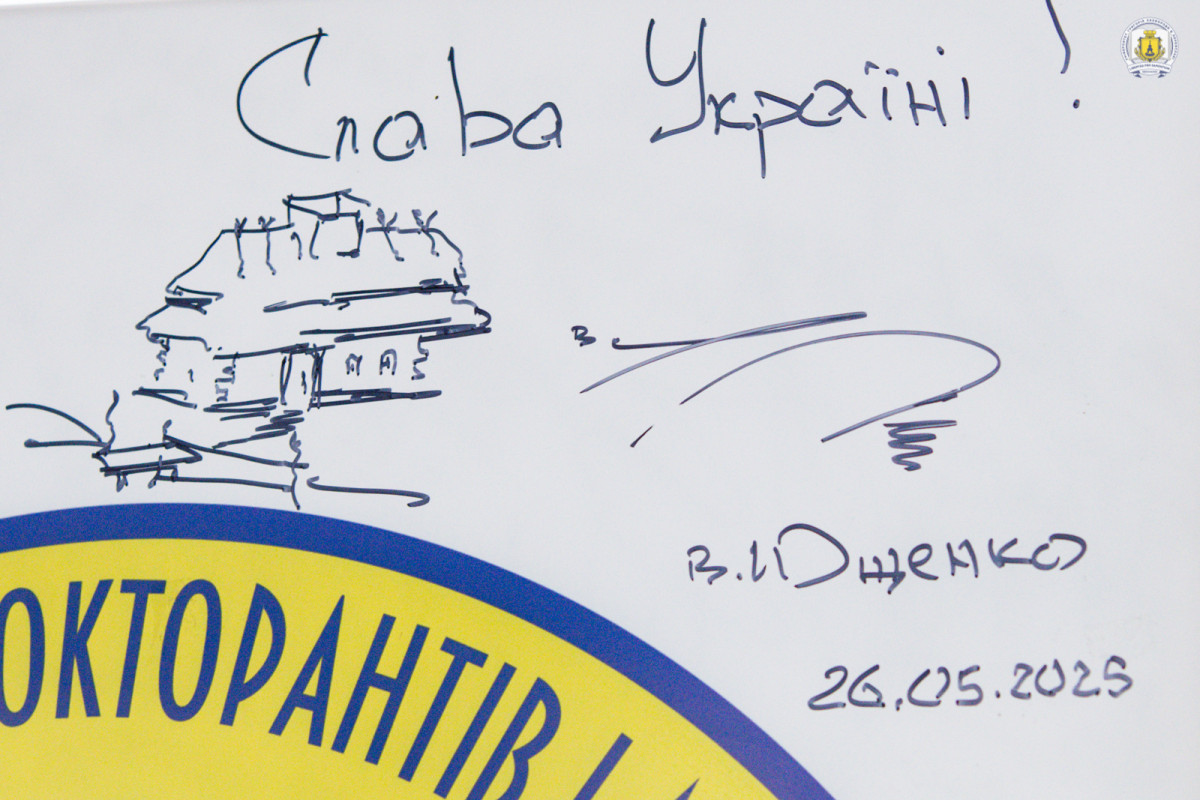 Слава Україні!
В
В. Ющенко
26.05.2025
ОКТОРАНТІВ І А